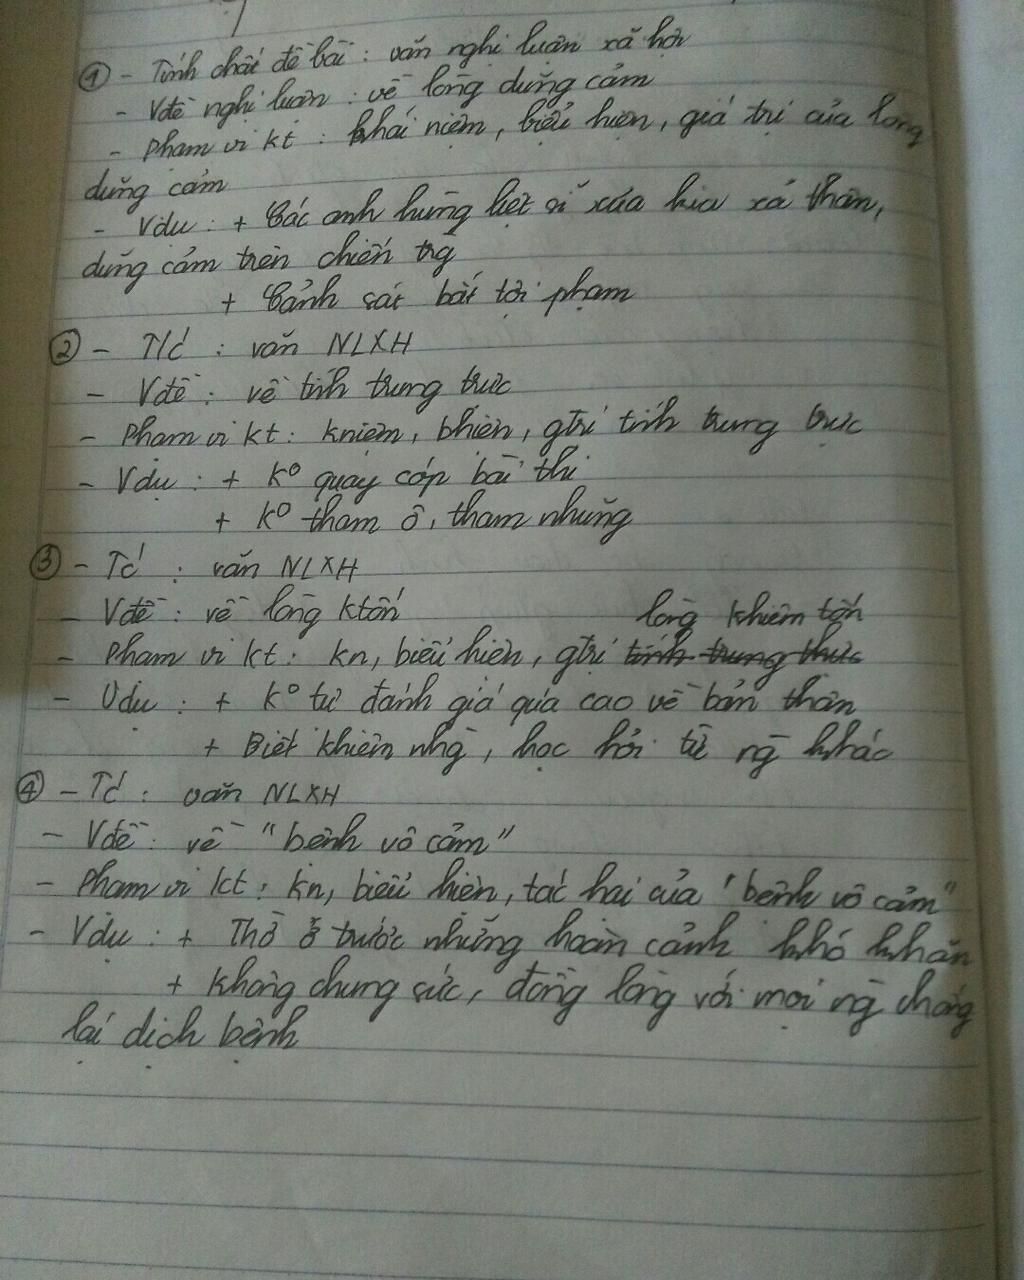 ① - Tính chất đề bài : văn nghị luận xã hội
- Vđề nghị luận : về lòng dũng cảm
- Phạm vi kt : khái niệm, biểu hiện, giá trị của lòng
dũng cảm
- Vdụ : + Các anh hùng liệt sĩ xưa kia xả thân,
dũng cảm trên chiến trg
+ Cảnh sát bắt tội phạm
② - T/c : văn NLXH
- Vđề : về tính trung trực
- Phạm vi kt : kniệm, bhiện, gtrị tính trung trực
- Vdụ : + Kº quay cóp bài thi
+ Kº tham ô, tham nhũng
③ - Tc : văn NLXH
- Vđề : về lòng ktốn
lòng khiêm tốn
- Phạm vi kt : kn, biểu hiện, gtrị tính trung thực
- Vdụ : + Kº tự đánh giá quá cao về bản thân
+ Biết khiêm nhg, học hỏi từ ng khác
④ - Tc : văn NLXH
- Vđề : về "bệnh vô cảm"
- Phạm vi kt : kn, biểu hiện, tác hại của "bệnh vô cảm"
- Vdụ : + Thờ ơ trước những hoàn cảnh khó khăn
+ Không chung sức, đồng lòng với mọi ng chống
lại dịch bệnh